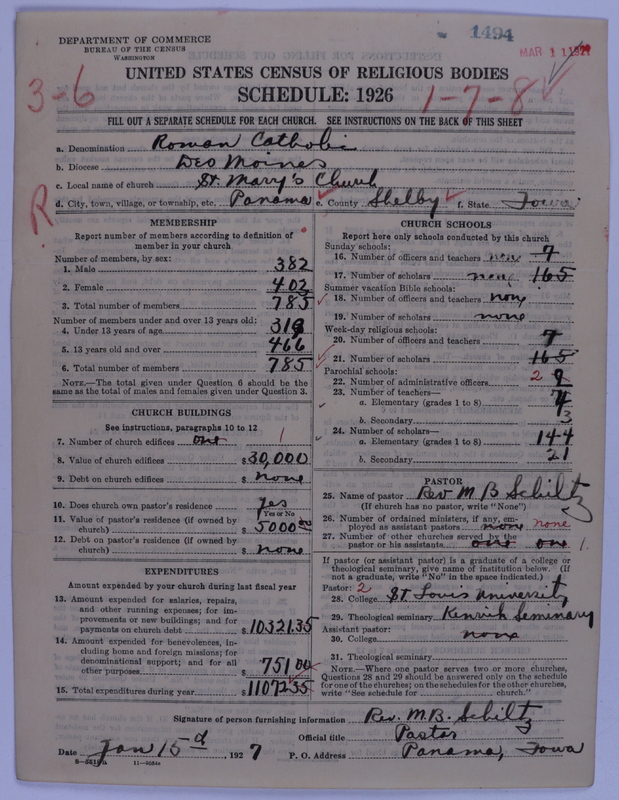 1494
DEPARTMENT OF COMMERCE
BUREAU OF THE CENSUS
WASHINGTON
MAR 11 1927
UNITED STATES CENSUS OF RELIGIOUS BODIES
SCHEDULE: 1926
3-6
1-7-8
FILL OUT A SEPARATE SCHEDULE FOR EACH CHURCH. SEE INSTRUCTIONS ON THE BACK OF THIS SHEET
a. Denomination Roman Catholic
b. Diocese Des Moines
c. Local name of church St. Mary's Church
d. City, town, village, or township, etc. Panama e. County Shelby f. State Iowa
R
MEMBERSHIP
Report number of members according to definition of
member in your church
Number of members, by sex:
1. Male 382
2. Female 402
3. Total number of members 785
Number of members under and over 13 years old:
4. Under 13 years of age 319
5. 13 years old and over 466
6. Total number of members 785
NOTE.—The total given under Question 6 should be the
same as the total of males and females given under Question 3.
CHURCH BUILDINGS
See instructions, paragraphs 10 to 12
7. Number of church edifices one 1
8. Value of church edifices $30,000
9. Debt on church edifices $ none
10. Does church own pastor's residence yes
Yes or No
11. Value of pastor's residence (if owned by
church) $ 5000 00
12. Debt on pastor's residence (if owned by
church) $ none
EXPENDITURES
Amount expended by your church during last fiscal year
13. Amount expended for salaries, repairs,
and other running expenses; for im-
provements or new buildings; and for
payments on church debt $ 10321.35
14. Amount expended for benevolences, in-
cluding home and foreign missions; for
denominational support; and for all
other purposes $ 751 00
15. Total expenditures during year $ 11072.35
CHURCH SCHOOLS
Report here only schools conducted by this church
Sunday schools:
16. Number of officers and teachers none 7
17. Number of scholars none 165
Summer vacation Bible schools:
18. Number of officers and teachers none
19. Number of scholars none
Week-day religious schools:
20. Number of officers and teachers 7
21. Number of scholars 165
Parochial schools:
22. Number of administrative officers 2
23. Number of teachers—
a. Elementary (grades 1 to 8)
b. Secondary 3
24. Number of scholars—
a. Elementary (grades 1 to 8) 144
b. Secondary 21
PASTOR
25. Name of pastor Rev M B Schiltz
(If church has no pastor, write "None")
26. Number of ordained ministers, if any, em-
ployed as assistant pastors none none
27. Number of other churches served by the
pastor or his assistants one one 1
If pastor (or assistant pastor) is a graduate of a college or
theological seminary, give name of institution below. (If
not a graduate, write "No" in the space indicated.)
Pastor: 2
28. College St Louis University
29. Theological seminary Kenrick Seminary
Assistant pastor:
30. College none
31. Theological seminary
NOTE.—Where one pastor serves two or more churches,
Questions 28 and 29 should be answered only on the schedule
for one of the churches; on the schedules for the other churches,
write "See schedule for church."
Signature of person furnishing information Rev. M.B. Schiltz
Official title Pastor
Date Jan 15 d, 1927 P. O. Address Panama, Iowa
11-9584a